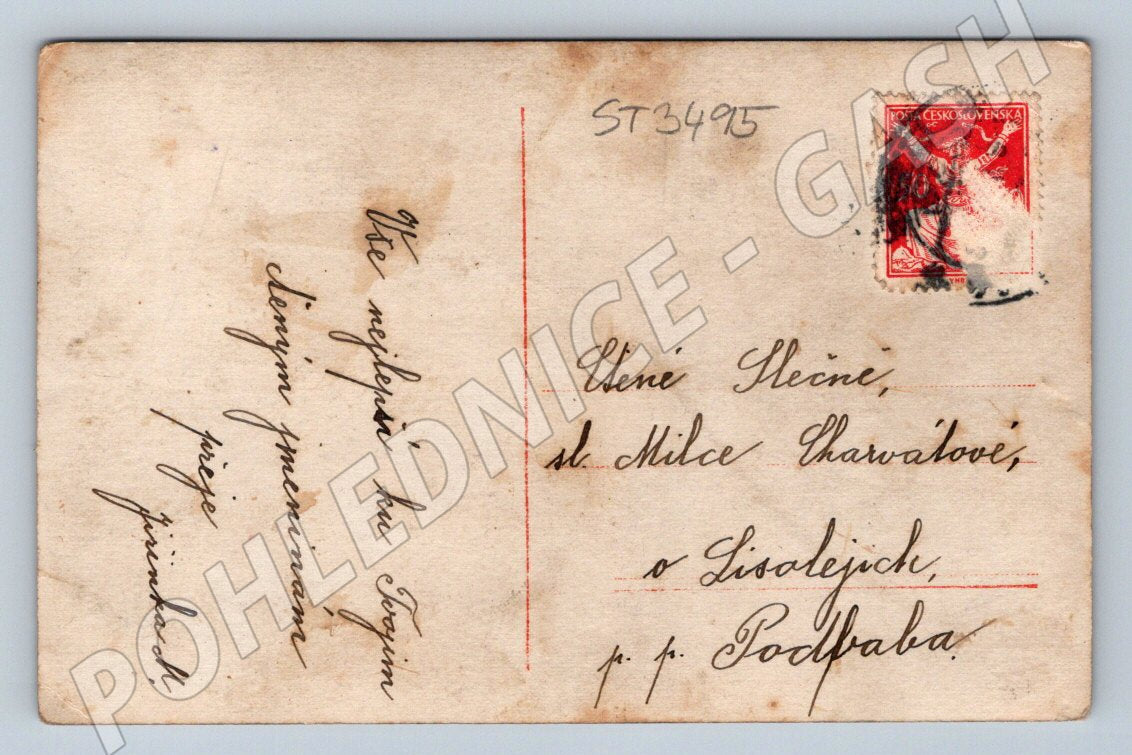 ST3495
POŠTA ČESKOSLOVENSKÁ
Vše nejlepší ku Tvojim
deným jmeninám
přeje
Jiřinka M.
Ctěné Slečně,
sl. Milce Charvátové,
v Lisolejích,
p. p. Podbaba.
POHLEDNICE - GASH